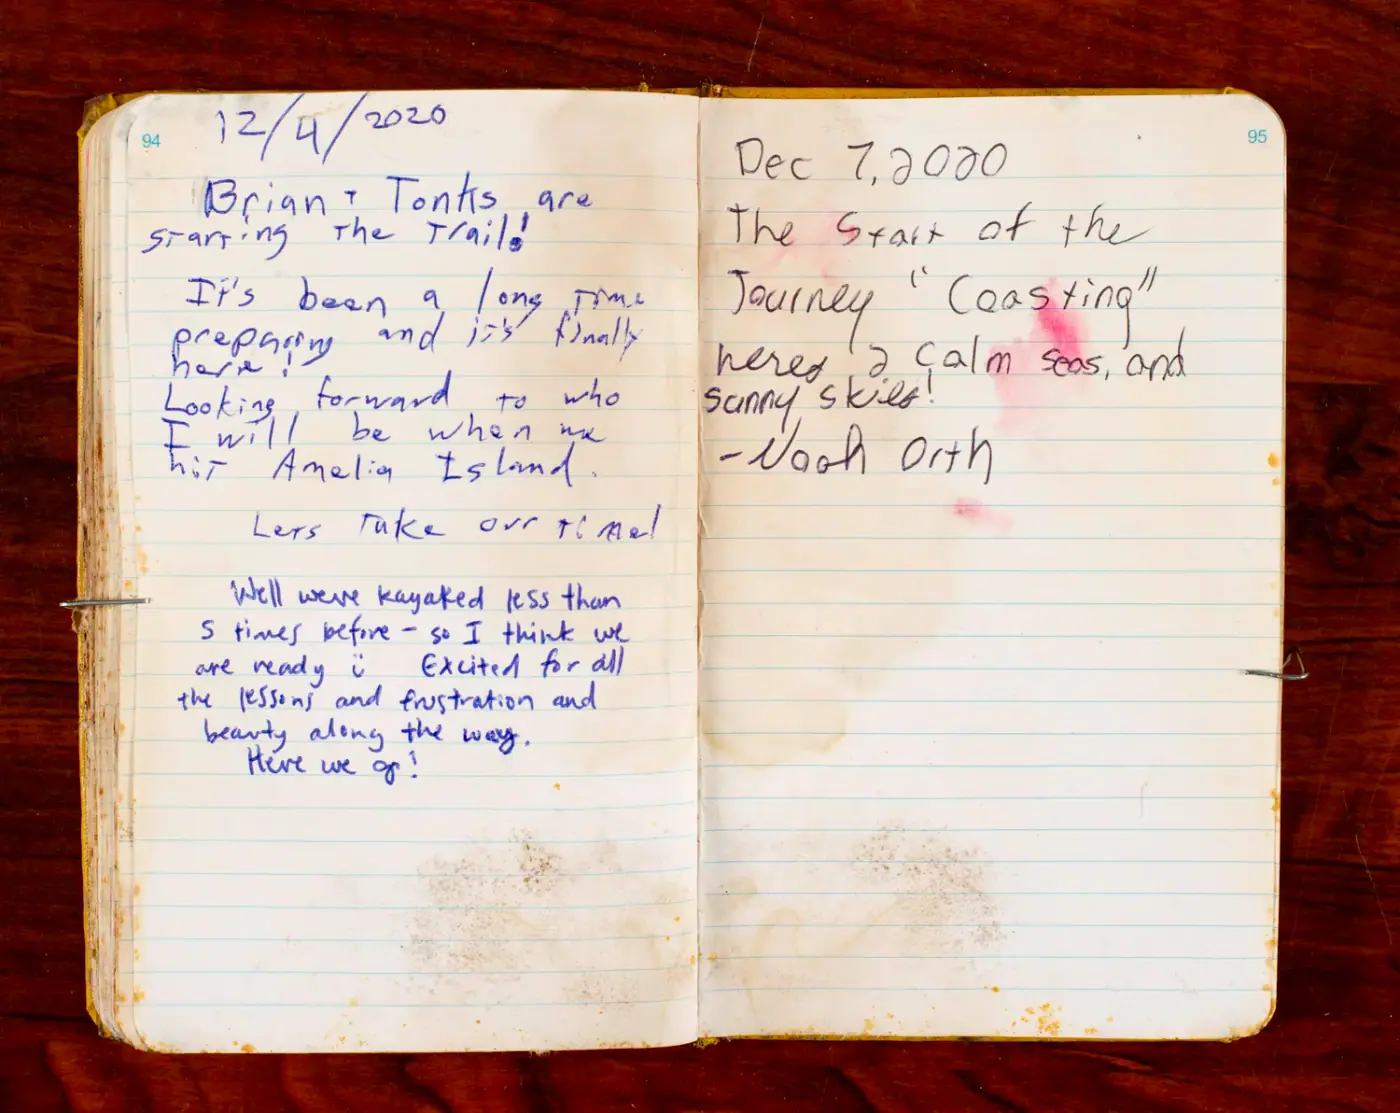 94
12/4/2020
Brian + Tonks are
starting the Trail!
It's been a long time
preparing and it's finally
here!
Looking forward to who
I will be when we
hit Amelia Island.
Lets take our time!
Well weve kayaked less than
5 times before - so I think we
are ready ü Excited for all
the lessons and frustration and
beauty along the way.
Here we go!
95
Dec 7, 2020
The Start of the
Journey "Coasting"
heres 2 calm seas, and
sunny skies!
- Noah Orth